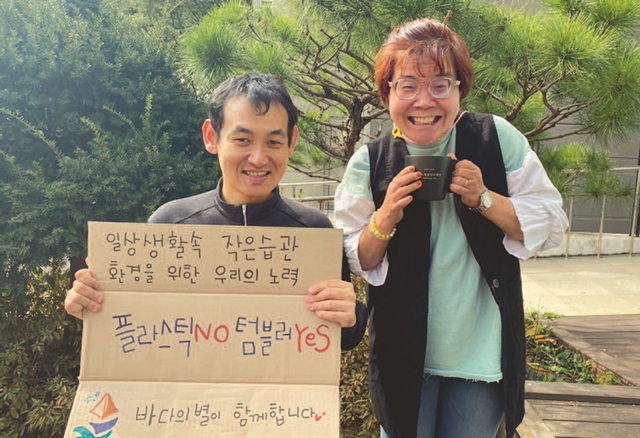 일상생활속 작은습관
환경을 위한 우리의 노력
플라스틱NO 텀블러YES
바다의별이 함께합니다